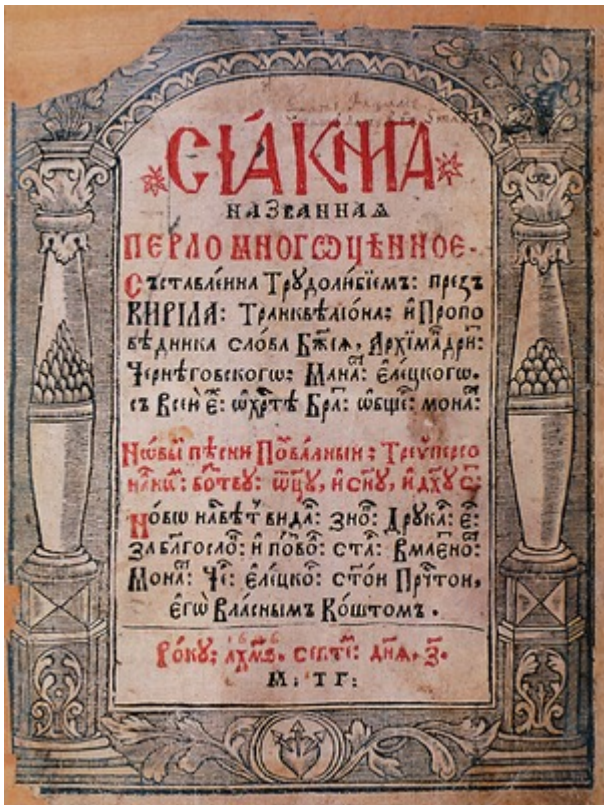 СІѦ́ КНИ́ГА
НАЗВАННАѦ
ПЕРЛО МНОГѠЦѢННОЕ.
Съставле́нна Трудолю́бїемъ: презъ
КИРІ́ЛА: Транквѣлїо́на: и҆ Пропо
вѣ́дника сло́ва Бж҃їѧ, Архїма́дри:
Черне́говскогѡ: Мана: є҆ле́цкогѡ.
съ Всеи Є: ѡ Хр҃тѣ Бра: ѡбще: мона:
Нѡ́выи пѣ́сни Похва́лныи: Треѵ́персо
бозтву: ѿц҃у, и҆ сн҃у, и҆ дх҃у с:
Но́вѡ вида: зно: Друка: є:
За блгосло: и҆ пово: ста: Вмаено:
Мона: Че: є҆ле́цко: сто́и Прчтои,
є҆гѡ̀ Вла́снымъ Ко́штомъ.
Ро́ку: ҂ахмѕ. септе: днѧ, з.
М: Т Г: